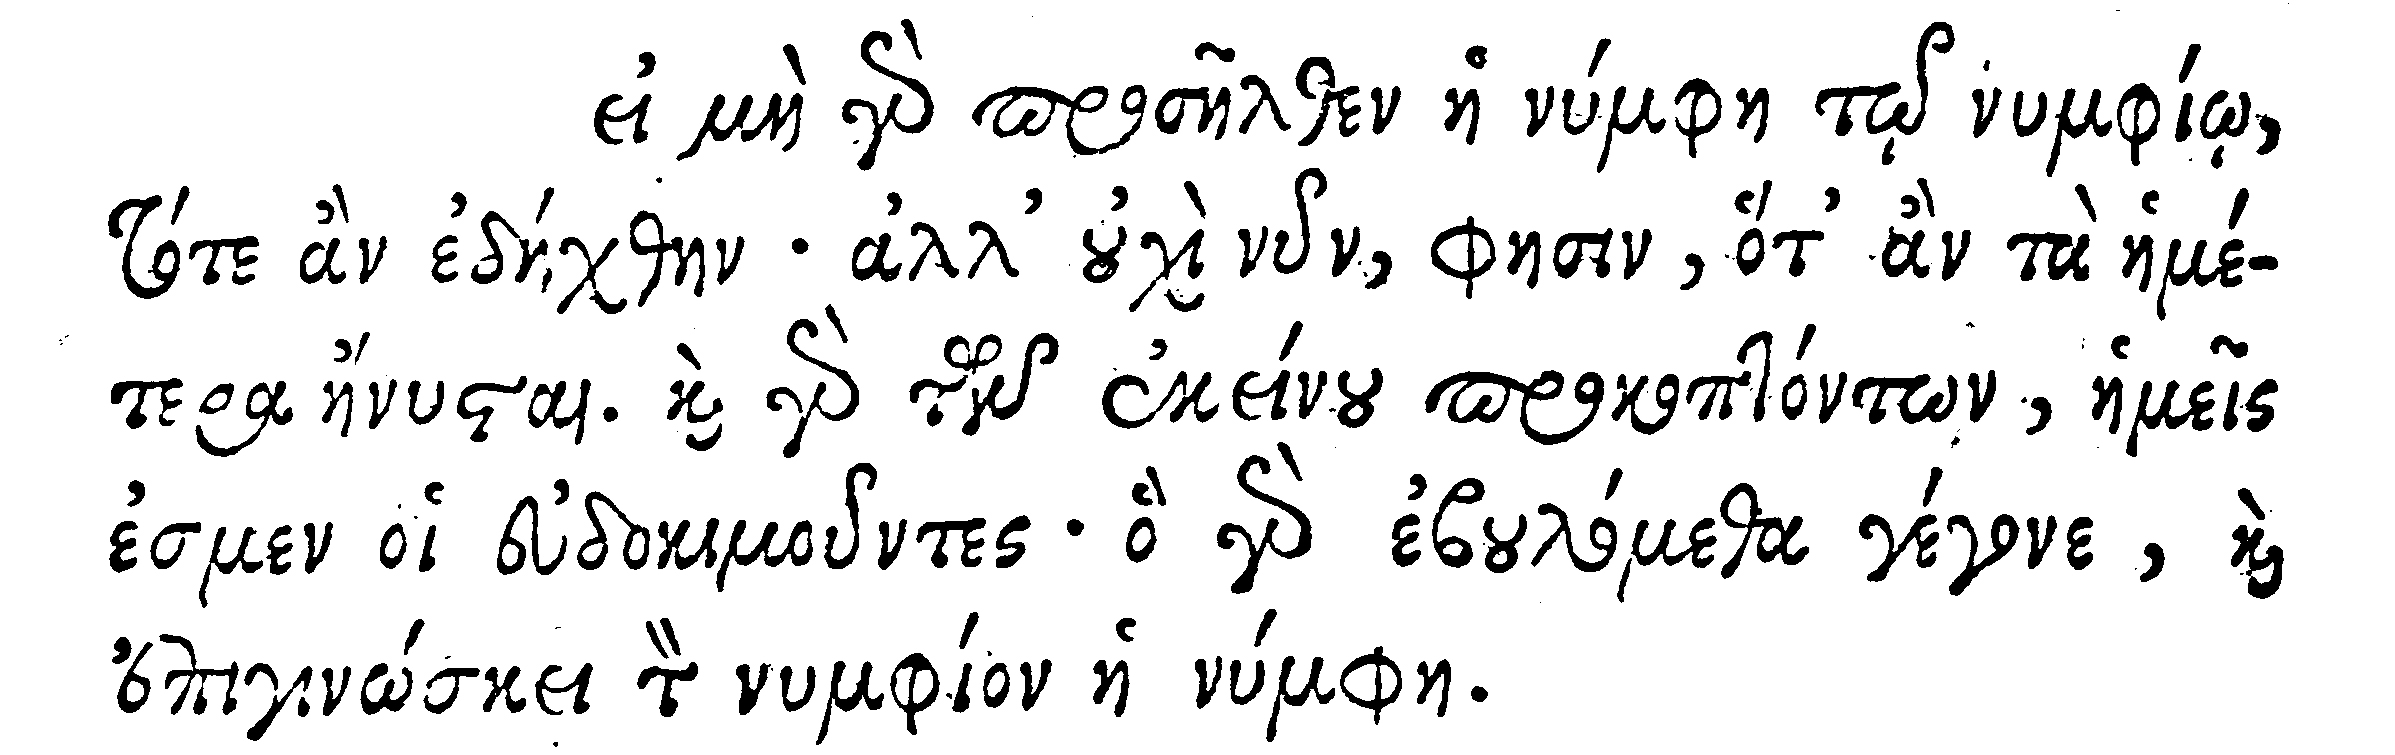 εἰ μὴ γὰρ προσῆλθεν ἡ νύμφη τῷ νυμφίῳ,
τότε ἂν ἐδήχθην · ἀλλ' οὐχὶ νῦν, φησιν, ὅτ' ἂν τὰ ἡμέ-
τερα ἤνυσται. καὶ γὰρ τῶν ἐκείνου προκοπτόντων, ἡμεῖς
ἐσμεν οἱ εὐδοκιμοῦντες · ὃ γὰρ ἐβουλόμεθα γέγονε, καὶ
ἐπιγινώσκει τὸν νυμφίον ἡ νύμφη.